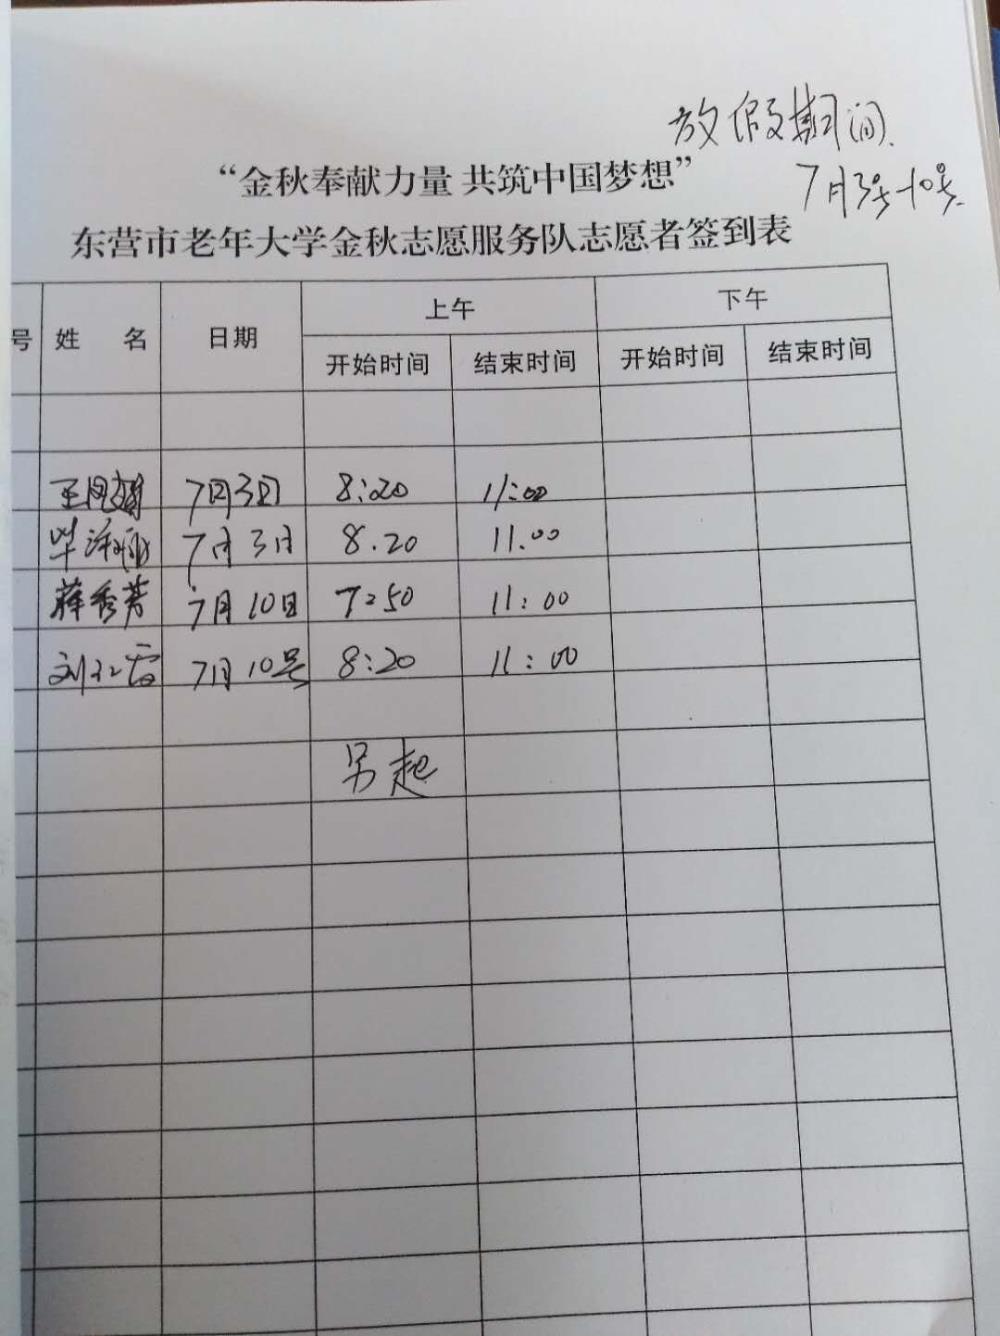 放假期间.
7月3号-10号.
“金秋奉献力量 共筑中国梦想”
东营市老年大学金秋志愿服务队志愿者签到表
号 姓 名 日期 上午 下午
开始时间 结束时间 开始时间 结束时间
王凤 7月3日 8:20 11:00
毕 7月3日 8.20 11.00
蒋秀芳 7月10日 7:50 11:00
刘红霞 7月10号 8:20 11:00
另起